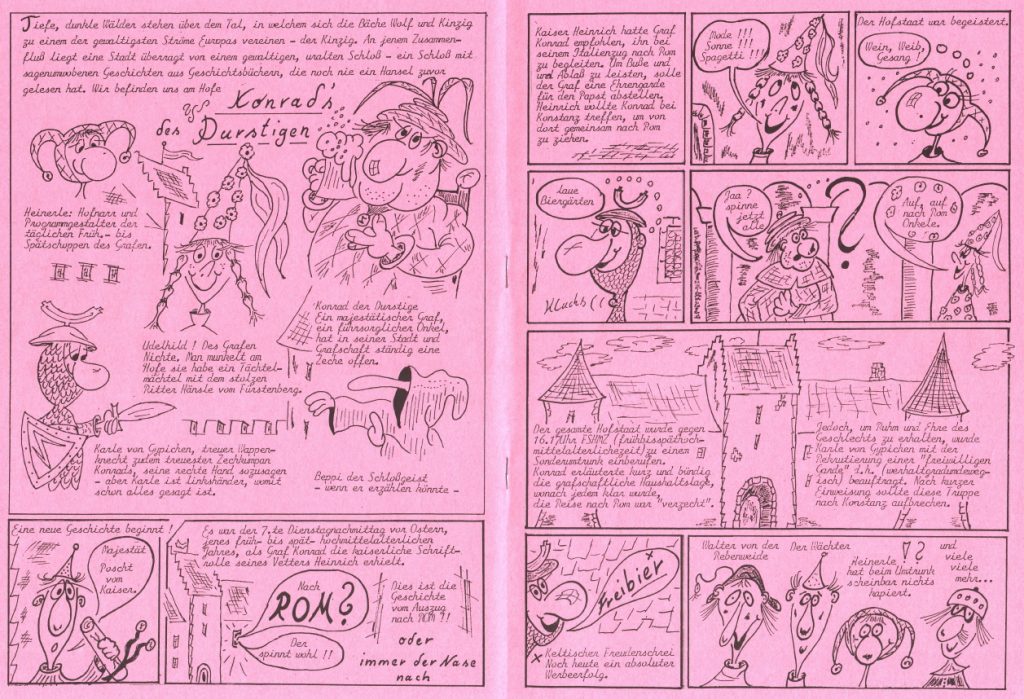 Tiefe, dunkle Wälder stehen über dem Tal, in welchem sich die Bäche Wolf und Kinzig
zu einem der gewaltigsten Ströme Europas vereinen - der Kinzig. An jenem Zusammen-
fluß liegt eine Stadt überragt von einem gewaltigen, uralten Schloß - ein Schloß mit
sagenumwobenen Geschichten aus Geschichtsbüchern, die noch nie ein Hansel zuvor
gelesen hat. Wir befinden uns am Hofe
Konrad's
des Durstigen
Heinerle: Hofnarr und
Programmgestalter der
täglichen Früh,- bis
Spätschuppen des Grafen.
Konrad der Durstige
Ein majestätischer Graf,
ein führsorglicher Onkel,
hat in seiner Stadt und
Grafschaft ständig eine
Zeche offen.
Udelhild ! Des Grafen
Nichte. Man munkelt am
Hofe sie habe ein Tächtel-
mächtel mit dem stolzen
Ritter Hänsle vom Fürstenberg.
Karle von Gypichen, treuer Wappen-
knecht zudem treuester Zechkumpan
Konrads, seine rechte Hand sozusagen
- aber Karle ist linkshänder, womit
schon alles gesagt ist.
Beppi der Schloßgeist
- wenn er erzählen könnte -
Eine neue Geschichte beginnt !
Majestät
Poscht
vom
Kaiser.
Es war der 7.te Dienstagnachmittag vor Ostern,
jenes früh- bis spät- hochmittelalterlichen
Jahres, als Graf Konrad die kaiserliche Schrift-
rolle seines Vetters Heinrich erhielt.
Nach
ROM?
Der
spinnt wohl !!
Dies ist die
Geschichte
vom Auszug
nach ROM ?!
oder
immer der Nase
nach
Kaiser Heinrich hatte Graf
Konrad empfohlen, ihn bei
seinem Italienzug nach Rom
zu begleiten. Um Buße und
und Ablaß zu leisten, solle
der Graf eine Ehrengarde
für den Papst abstellen.
Heinrich wollte Konrad bei
Konstanz treffen, um von
dort gemeinsam nach Rom
zu ziehen.
Mode !!!
Sonne !!!
Spagetti !!!
Der Hofstaat war begeistert.
Wein, Weib,
Gesang !
Laue
Biergärten
Klucks ( (
Jaa ?
spinne
jetzt
alle
?
Auf, auf
nach Rom
Onkele.
Der gesamte Hofstaat wurde gegen
16.17Uhr FSHMZ (frühbisspäthoch-
mittelalterlichezeit) zu einem
Sonderumtrunk einberufen.
Konrad erläuterte kurz und bündig
die grafschaftliche Haushaltslage,
wonach jedem klar wurde,
die Reise nach Rom war "verzecht".
Jedoch, um Ruhm und Ehre des
Geschlechts zu erhalten, wurde
Karle von Gypichen mit der
Rekrutierung einer "freiwilligen
Garde" d.h. (werhaltgradumdeweg-
isch) beauftragt. Nach kurzer
Einweisung sollte diese Truppe
nach Konstanz aufbrechen.
x
Freibier
x Keltischer Freudenschrei
Noch heute ein absoluter
Werbeerfolg.
Walter von der
Rebenweide
Der Wächter
Heinerle
hat beim Umtrunk
scheinbar nichts
kapiert.
??
und
viele
viele
mehr...